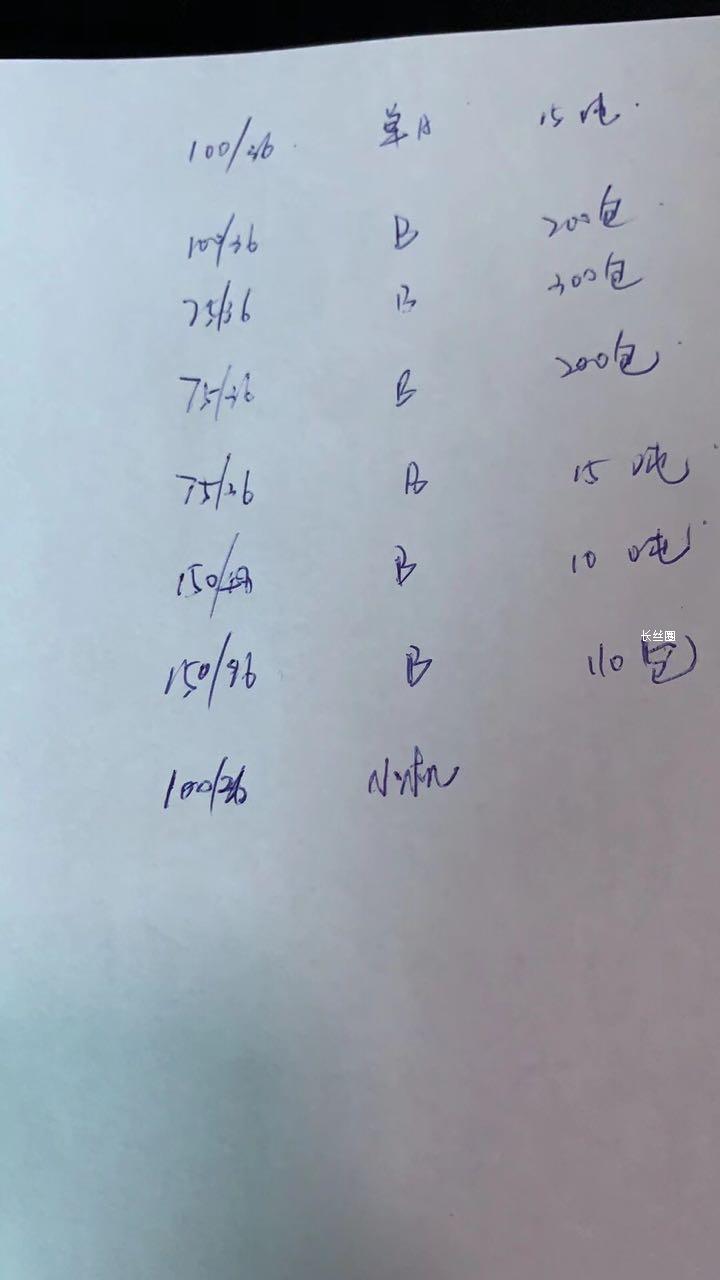 100/36 单A 15吨
100/36 B 200包
75/36 B 300包
75/36 B 200包
75/36 A 15吨
150/ B 10吨
长丝圈
150/96 B 110包
100/36